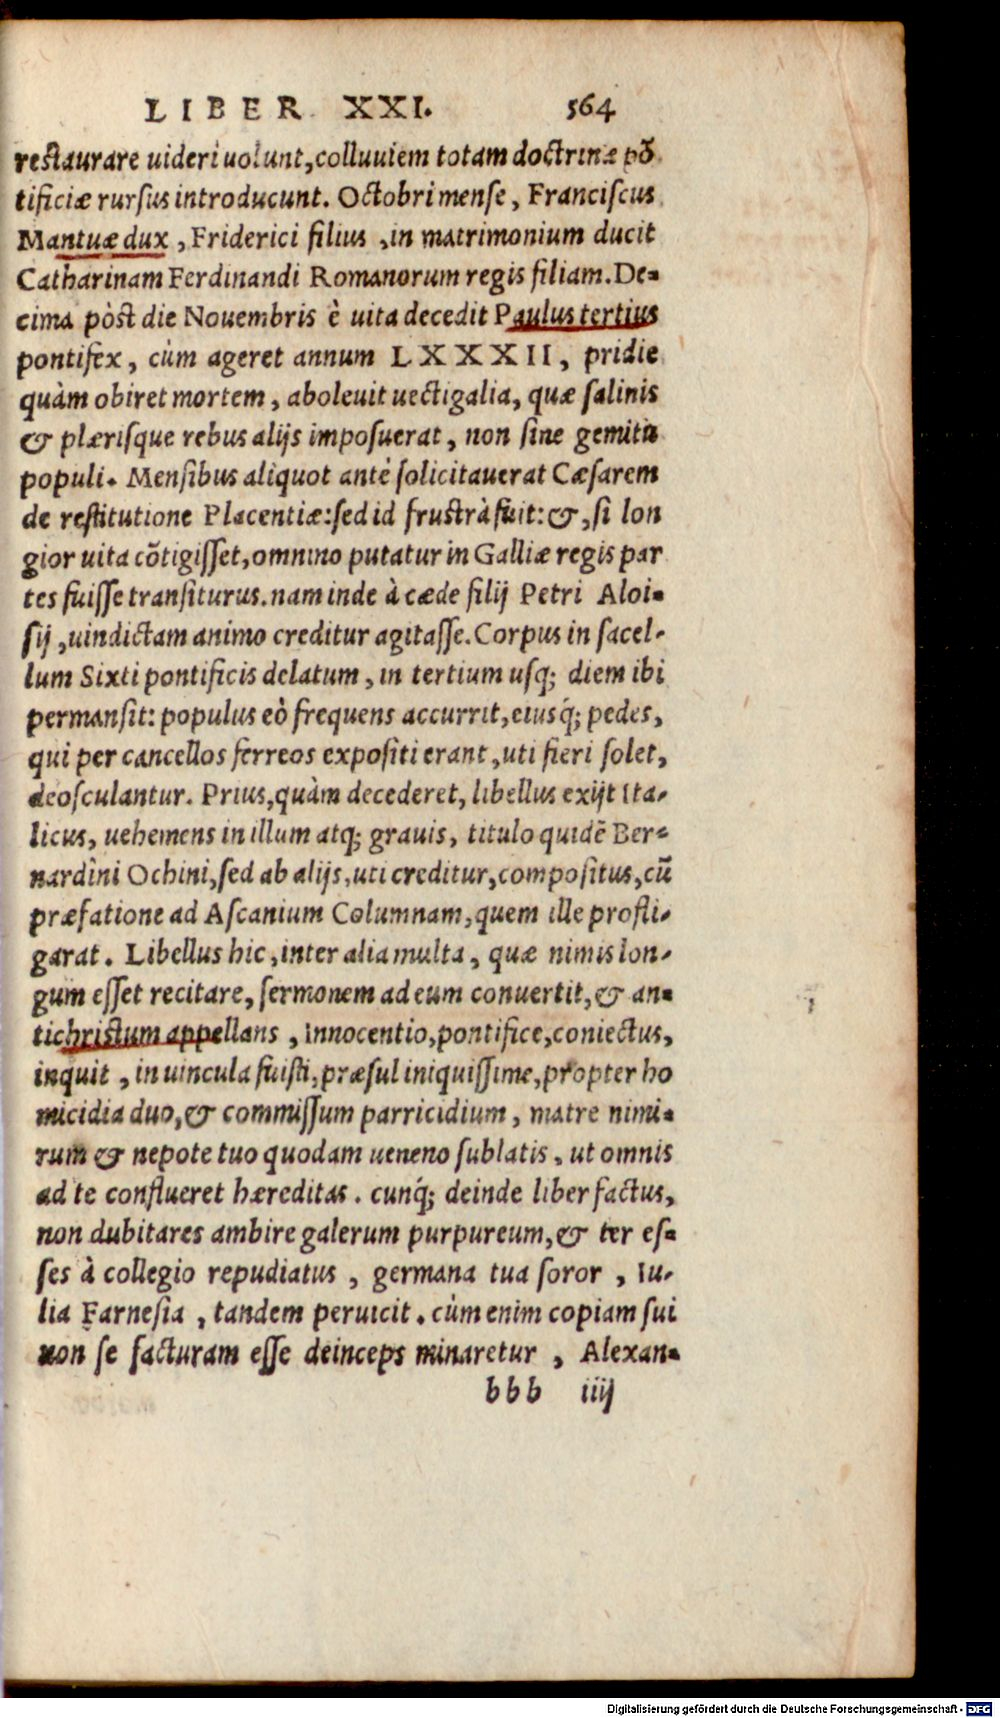 LIBER XXI. 564
restaurare uideri uolunt, colluuiem totam doctrinæ põ
tificiæ rursus introducunt. Octobri mense, Franciscus
Mantuæ dux, Friderici filius, in matrimonium ducit
Catharinam Ferdinandi Romanorum regis filiam. De-
cima pòst die Nouembris è uita decedit Paulus tertius
pontifex, cùm ageret annum LXXXII, pridie
quàm obiret mortem, aboleuit uectigalia, quæ salinis
& plærisque rebus alijs imposuerat, non sine gemitu
populi. Mensibus aliquot antè solicitauerat Cæsarem
de restitutione Placentiæ: sed id frustrà fuit: &, si lon
gior uita cõtigisset, omnino putatur in Galliæ regis par
tes fuisse transiturus. nam inde à cæde filij Petri Aloi-
sij, uindictam animo creditur agitasse. Corpus in sacel-
lum Sixti pontificis delatum, in tertium usq; diem ibi
permansit: populus eò frequens accurrit, eiusq́; pedes,
qui per cancellos ferreos expositi erant, uti fieri solet,
deosculantur. Prius, quàm decederet, libellus exijt Ita-
licus, uehemens in illum atq; grauis, titulo quidẽ Ber-
nardini Ochini, sed ab alijs, uti creditur, compositus, cũ
præfatione ad Ascanium Columnam, quem ille profli-
garat. Libellus hic, inter alia multa, quæ nimis lon-
gum esset recitare, sermonem ad eum conuertit, & an-
tichristum appellans, Innocentio, pontifice, coniectus,
inquit, in uincula fuisti, præsul iniquissime, propter ho
micidia duo, & commissum parricidium, matre nimi-
rum & nepote tuo quodam ueneno sublatis, ut omnis
ad te conflueret hæreditas. cunq́; deinde liber factus,
non dubitares ambire galerum purpureum, & ter es-
ses à collegio repudiatus, germana tua soror, Iu-
lia Farnesia, tandem peruicit. cùm enim copiam sui
non se facturam esse deinceps minaretur, Alexan-
bbb iiij
Digitalisierung gefördert durch die Deutsche Forschungsgemeinschaft - DFG